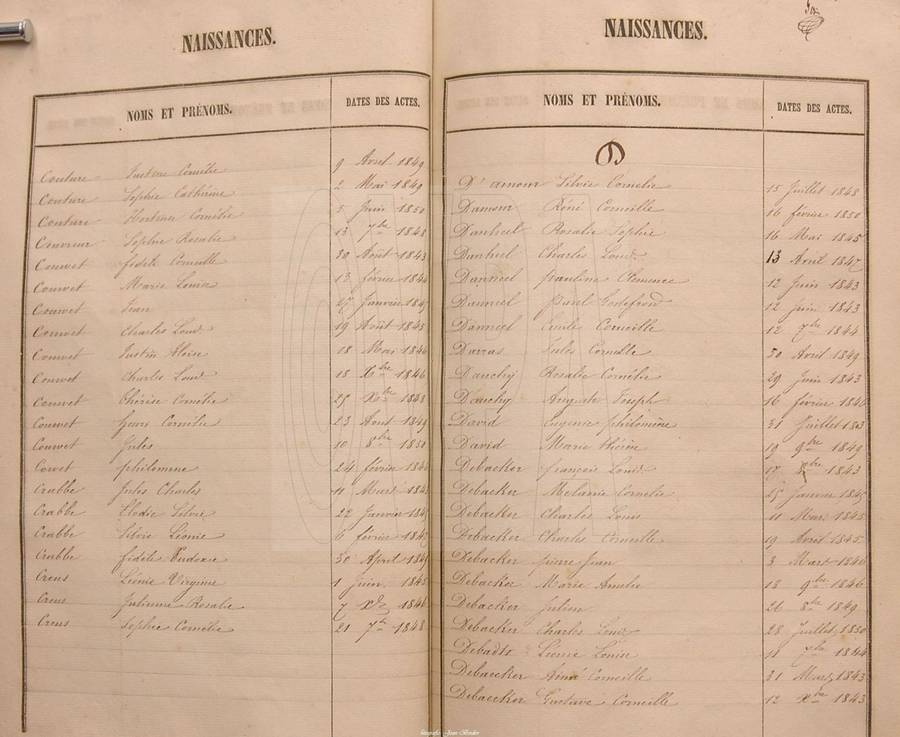 NAISSANCES.
NOMS ET PRÉNOMS. DATES DES ACTES.
Couture Cornélie 9 Avril 1849
Couture Sophie Cathérine 2 Mai 1849
Couture Hortense Cornélie 5 Juin 1850
Couvreur Sophie Rosalie 13 7bre 1848
Couvet fidèle Corneille 30 Août 1843
Couvet Marie Louise 13 février 1844
Couvet Jean 27 Janvier 1845
Couvet Charles Louis 19 Août 1845
Couvet Justin Aloise 18 Mai 1846
Couvet Charles Louis 18 Xbre 1846
Couvet thérèse Cornélie 25 Xbre 1848
Couvet henri Cornélie 23 Août 1849
Couvet Jules 10 8bre 1850
Covet philomène 24 février 1846
Crabbe Jules Charles 11 Mars
Crabbe Elodie Silvie 22 Janvier
Crabbe Silvie Léonie 6 février
Crabbe fidèle Eudoxie 30 Avril
Creus Léonie Virginie 1 Juin 1845
Creus Julienne Rosalie 7 Xbre 1846
Creus Sophie Cornélie 21 7bre 1848
NAISSANCES.
NOMS ET PRÉNOMS. DATES DES ACTES.
D
D'amour Silvie Cornelie 15 Juillet 1848
Damour Réné Corneille 16 février 1850
Danheel Rosalie Sophie 16 Mai 1845
Danheel Charles Louis 13 Avril 1847
Danneel pauline Clémence 12 Juin 1843
Danneel paul Godefroid 12 Juin 1843
Danneel Emile Corneille 12 7bre 1844
Darras Jules Corneille 30 Avril 1849
Dauchy Rosalie Cornélie 29 Juin 1843
Dauchy Auguste Joseph 16 février 1846
David Eugenie philomène 31 Juillet
David Marie thérèse 19 9bre 1849
Debacker françois Louis 17 1843
Debacker Melanie Cornelie 25 Janvier 1845
Debacker Charles Louis 11 Mars 1845
Debacker Charles Corneille 19 Avril 1845
Debacker pierre Jean 3 Mars 1846
Debacker Marie Amelie 18 9bre 1846
Debacker Julien 26 8bre 1849
Debacker Charles Louis 28 Juillet 1850
Debadts Léonie Louise 11 1844
Debaecker Aimé Corneille 31 Mars 1843
Debaecker Gustave Corneille 12 Xbre 1843